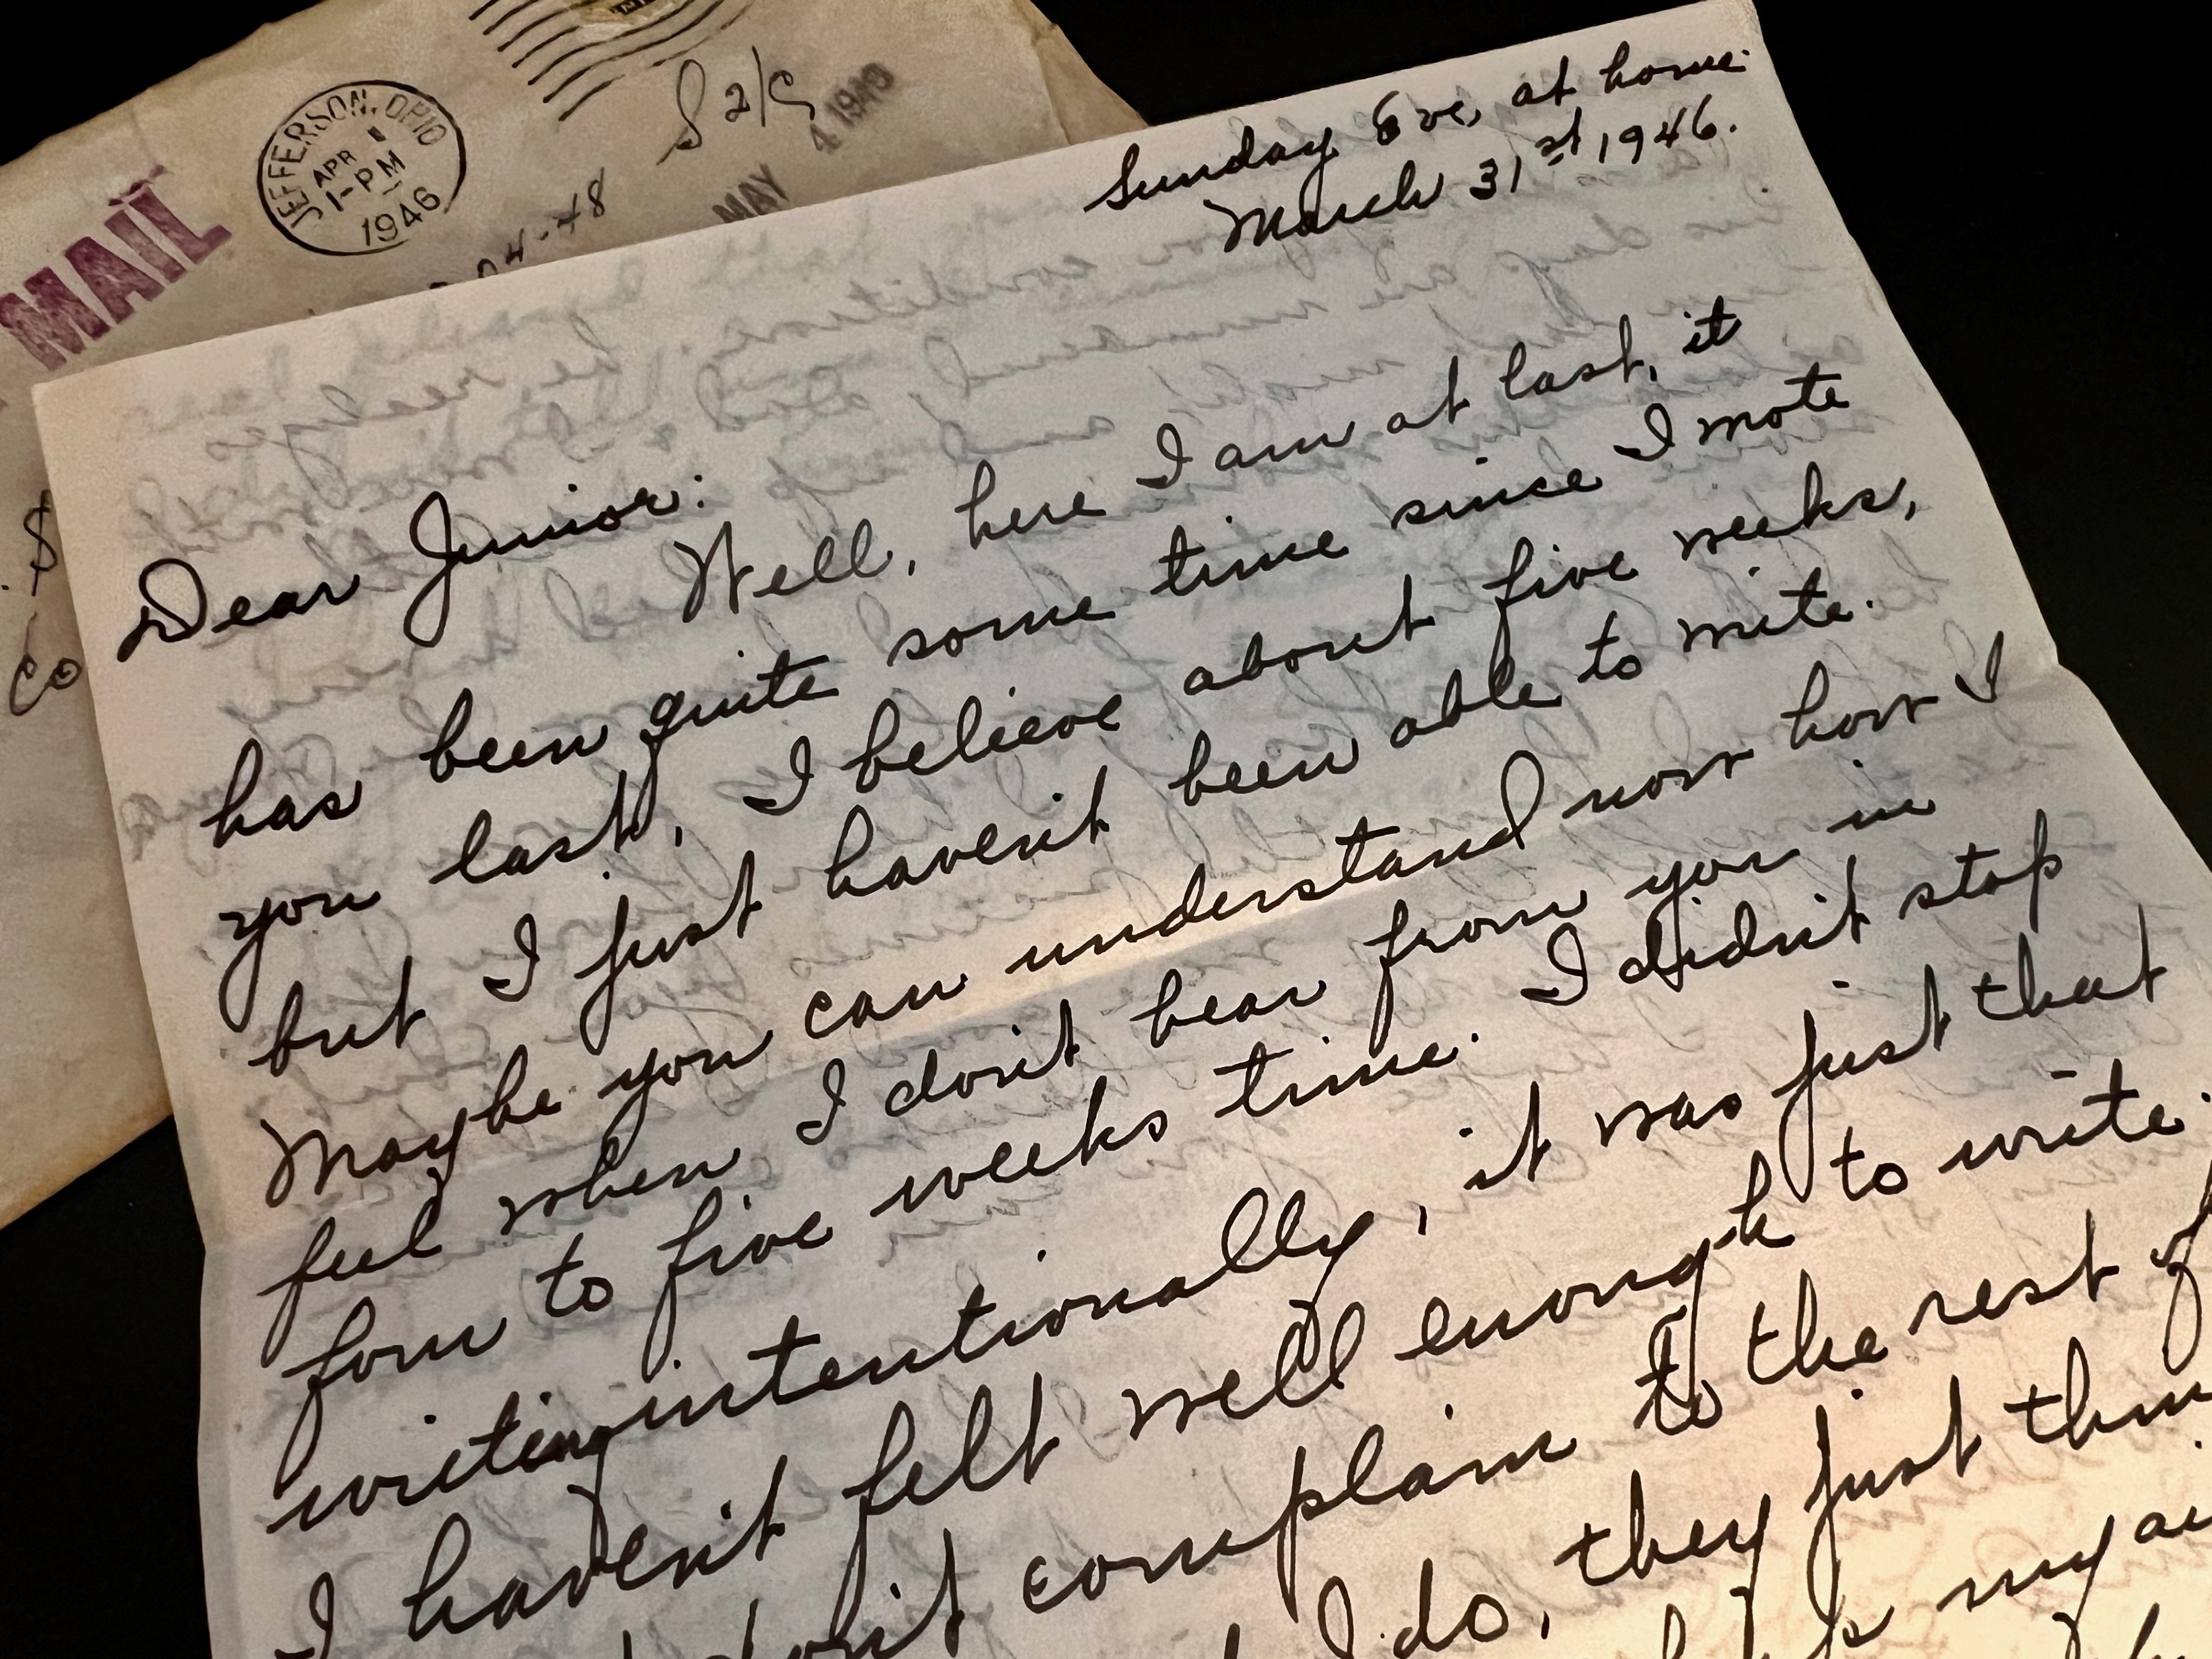 JEFFERSON, OHIO
APR 1
1-PM
1946
MAIL
S2/C
MAY 4 1946
04-48
$
co
Sunday Eve, at home.
March 31st 1946.
Dear Junior:
Well, here I am at last, it
has been quite some time since I wrote
you last, I believe about five weeks,
but I just haven't been able to write.
Maybe you can understand now how I
feel when I don't hear from you in
four to five weeks time. I didn't stop
writing intentionally, it was just that
I haven't felt well enough to write.
don't complain to the rest of
I do, they just
my